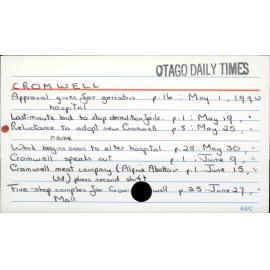 OTAGO DAILY TIMES
CROMWELL
Approval given for geriatric p.16 : May 1, 1990
hospital
Last-minute bid to stop demolition fails p.1 : May 19, "
Reluctance to adopt new Cromwell p.8 : May 25, "
name
Work begins soon to alter hospital p.28 : May 30, "
Cromwell speaks out p.1 : June 9, "
Cromwell meat company (Alpine Abattoir p.1 : June 15, "
Ltd) plans second shift
Five-shop complex for Cromwell p.25 : June 27, "
Mall